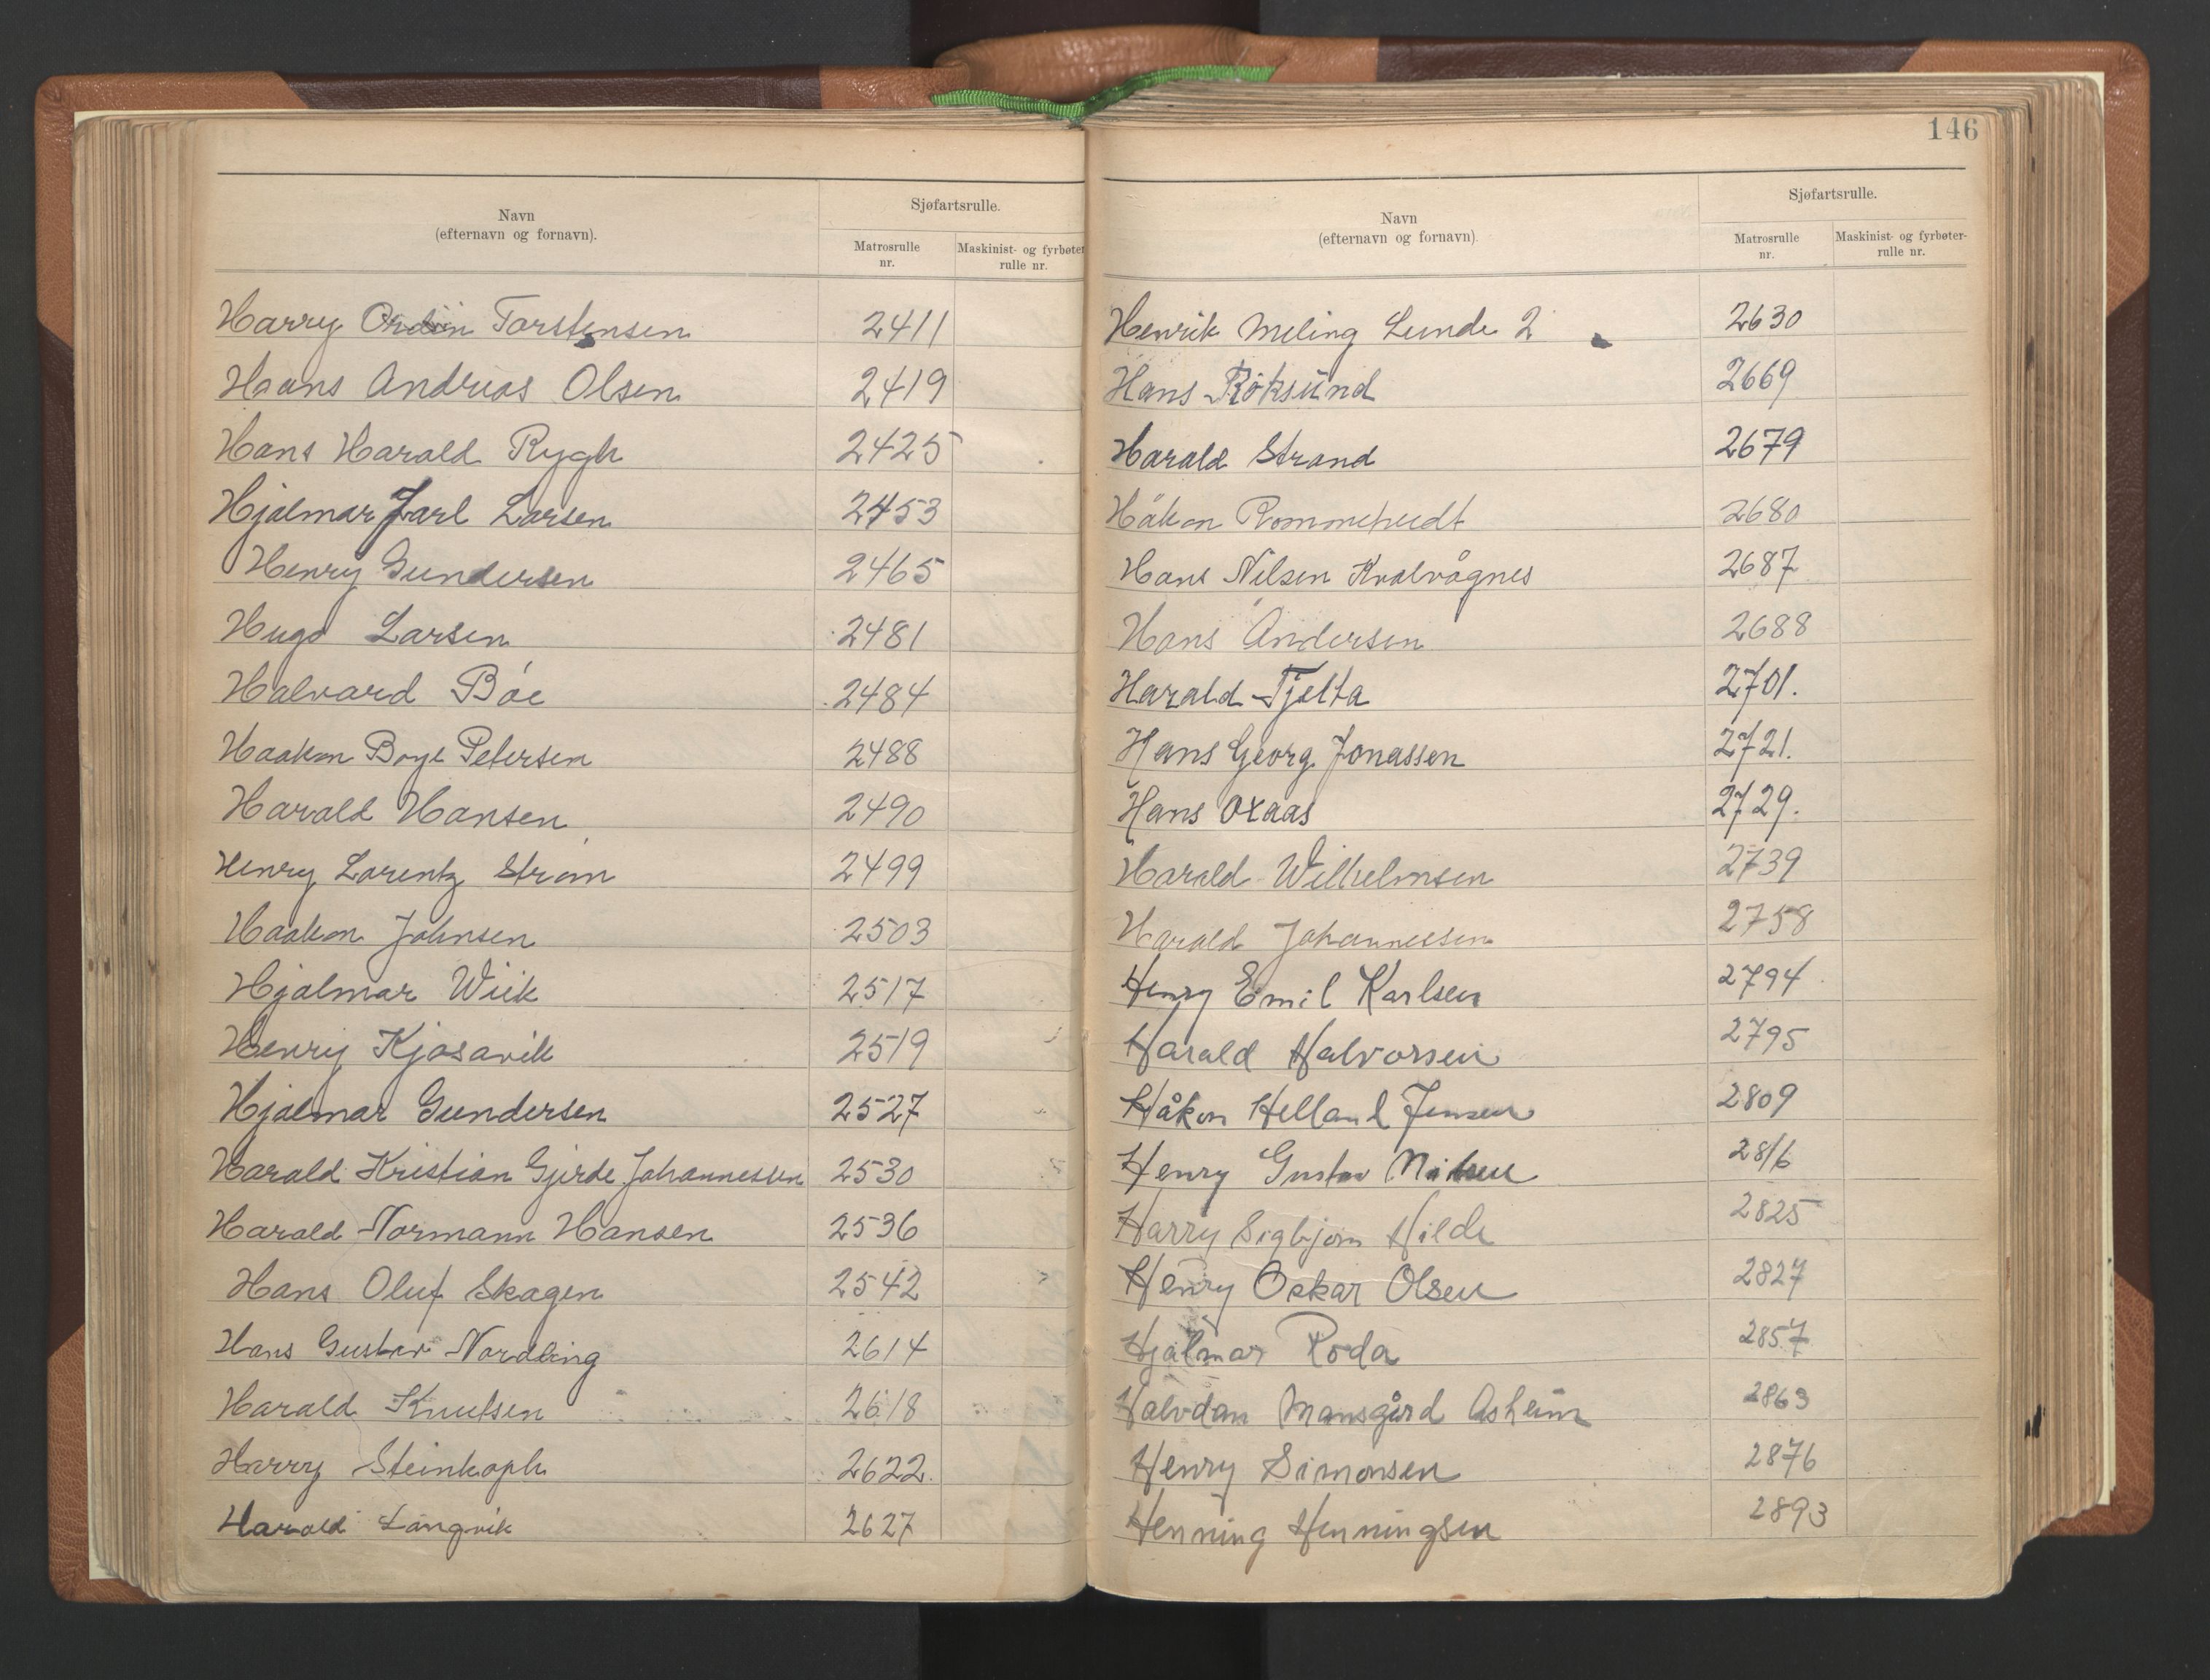 Navn
(efternavn og fornavn).
Sjøfartsrulle.
Matrosrulle nr.
Maskinist- og fyrbøter rulle nr.
Harry Torstensen 2411
Hans Andreas Olsen 2419
Hans Harald Rygh 2425
Hjalmar Jarl Larsen 2453
Henry Gundersen 2465
Hugo Larsen 2481
Halvard Bøe 2484
Haakon Boye Petersen 2488
Harald Hansen 2490
Henry Lorentz Strøm 2499
Haakon Johnsen 2503
Hjalmar Wiik 2517
Henry Kjosavik 2519
Hjalmar Gundersen 2527
Harald Kristian Gjerde Johannessen 2530
Harald Normann Hansen 2536
Hans Oluf Skagen 2542
Hans Gustav Nordling 2614
Harald Knutsen 2618
Harry Steinkoph 2622.
Harald Langvik 2627
146
Navn
(efternavn og fornavn).
Sjøfartsrulle.
Matrosrulle nr.
Maskinist- og fyrbøter- rulle nr.
Henrik Meling Lunde 2 2630
Hans Röksund 2669
Harald Strand 2679
Håkon Rommetvedt 2680
Hans Nilsen Kvalvågnes 2687
Hans Andersen 2688
Harald Tjelta 2701.
Hans Georg Jonassen 2721.
Hans Oxaas 2729.
Harald Wilhelmsen 2739
Harald Johannessen 2758
Henry Emil Karlsen 2794
Harald Halvorsen 2795
Håkon Helland Jensen 2809
Henry Gustav 2816
Harry Sigbjørn Hilde 2825
Henry Oskar Olsen 2827
Hjalmar Roda 2857
Halvdan Mansgård Asheim 2863
Henry Simonsen 2876
Henning Henningsen 2893